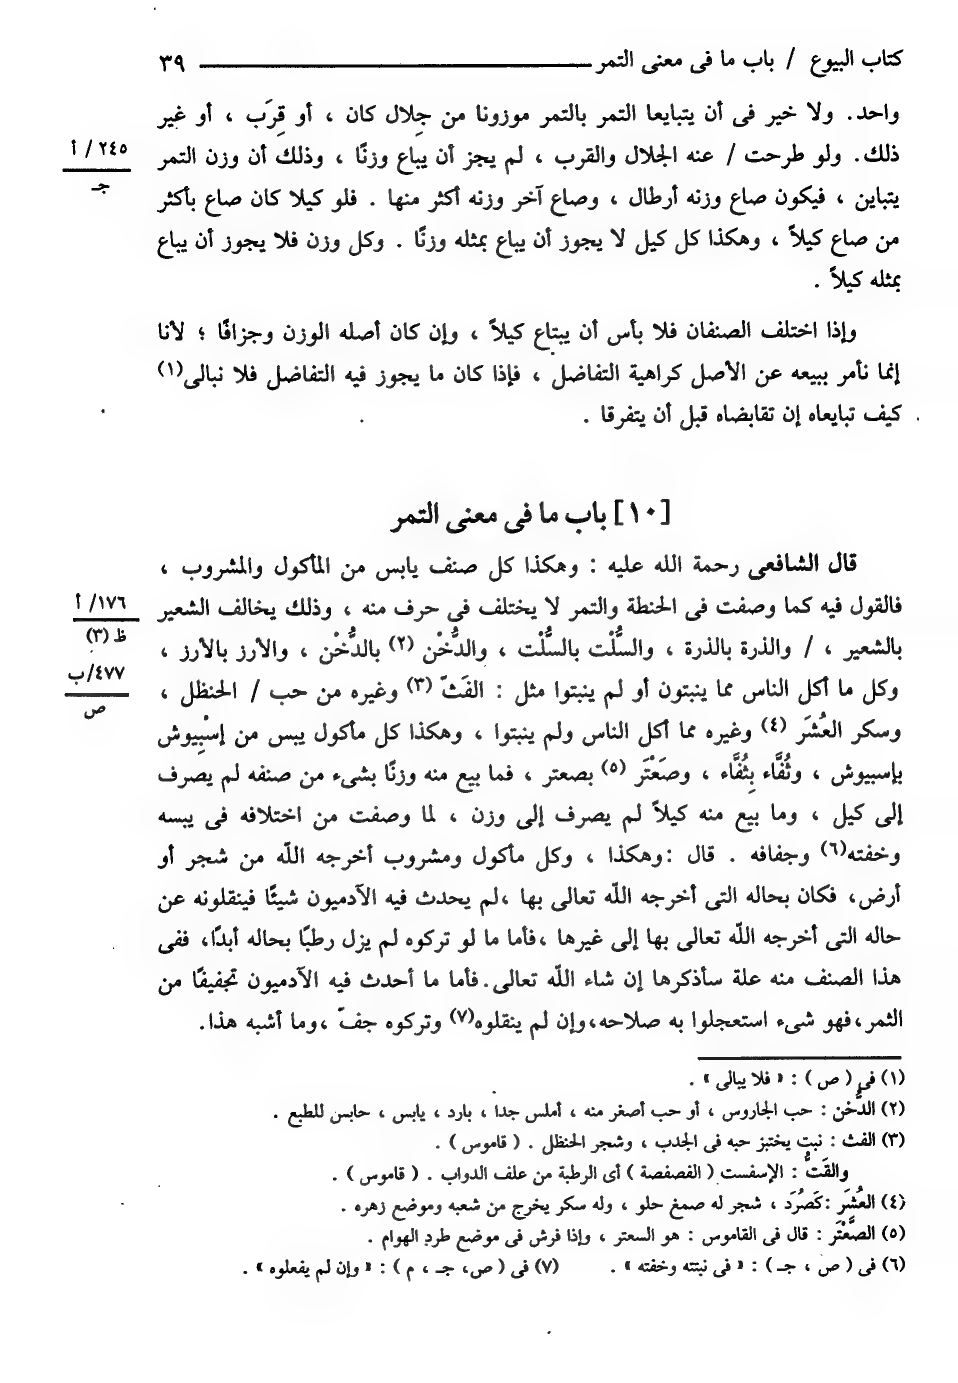 كتاب البيوع / باب ما فى معنى التمر ٣٩
واحد. ولا خير فى أن يتبايعا التمر بالتمر موزونا من جِلال كان ، أو قِرَب ، أو غير
ذلك. ولو طرحت / عنه الجلال والقرب ، لم يجز أن يباع وزنًا ، وذلك أن وزن التمر
٢٤٥ / أ
جـ
يتباين ، فيكون صاع وزنه أرطال ، وصاع آخر وزنه أكثر منها . فلو كيلا كان صاع بأكثر
من صاع كيلاً ، وهكذا كل كيل لا يجوز أن يباع بمثله وزنًا . وكل وزن فلا يجوز أن يباع
بمثله كيلاً .
وإذا اختلف الصنفان فلا بأس أن يبتاع كيلاً ، وإن كان أصله الوزن وجزافًا ؛ لأنا
إنما نأمر ببيعه عن الأصل كراهية التفاضل ، فإذا كان ما يجوز فيه التفاضل فلا نبالى(١)
كيف تبايعاه إن تقابضاه قبل أن يتفرقا .
[١٠] باب ما فى معنى التمر
قال الشافعى رحمة الله عليه : وهكذا كل صنف يابس من المأكول والمشروب ،
فالقول فيه كما وصفت فى الحنطة والتمر لا يختلف فى حرف منه ، وذلك يخالف الشعير
١٧٦/ أ
ظ (٣)
بالشعير ، / والذرة بالذرة ، والسُّلْت بالسُّلْت ، والدُّخْن (٢) بالدُّخْن ، والأرز بالأرز ،
٤٧٧/ب
ص
وكل ما أكل الناس مما ينبتون أو لم ينبتوا مثل : الفَثّ (٣) وغيره من حب / الحنظل ،
وسكر العُشَر (٤) وغيره مما أكل الناس ولم ينبتوا ، وهكذا كل مأكول يبس من إسْبِيوش
بإسبيوش ، وثُفَّاء بِثُفَّاء ، وصَعْتَر (٥) بصعتر ، فما بيع منه وزنًا بشىء من صنفه لم يصرف
إلى كيل ، وما بيع منه كيلاً لم يصرف إلى وزن ، لما وصفت من اختلافه فى يبسه
وخفته(٦) وجفافه . قال :وهكذا ، وكل مأكول ومشروب أخرجه الله من شجر أو
أرض، فكان بحاله التى أخرجه الله تعالى بها ،لم يحدث فيه الآدميون شيئًا فينقلونه عن
حاله التى أخرجه الله تعالى بها إلى غيرها ،فأما ما لو تركوه لم يزل رطبًا بحاله أبدًا، ففى
هذا الصنف منه علة سأذكرها إن شاء الله تعالى.فأما ما أحدث فيه الآدميون تجفيفًا من
الثمر،فهو شىء استعجلوا به صلاحه،وإن لم ينقلوه(٧) وتركوه جفّ ،وما أشبه هذا.
(١) فى ( ص ) : « فلا يبالى » .
(٢) الدُّخن : حب الجاروس ، أو حب أصغر منه ، أملس جدا ، بارد ، يابس ، حابس للطبع .
(٣) الفث : نبت يختبز حبه فى الجدب ، وشجر الحنظل . ( قاموس ) .
والقَتُّ : الإسفست ( الفصفصة ) أى الرطبة من علف الدواب . ( قاموس ) .
(٤) العُشَر :كَصُرَد ، شجر له صمغ حلو ، وله سكر يخرج من شعبه وموضع زهره .
(٥) الصَّعْتَر : قال فى القاموس : هو السعتر ، وإذا فرش فى موضع طرد الهوام .
(٦) فى ( ص ، جـ ) : « فى نبتته وخفته » . (٧) فى ( ص، جـ ، م ) : « وإن لم يفعلوه » .